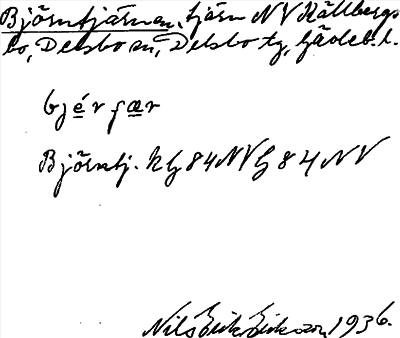 Björntjärnen, tjärn NV Källbergs
bo, Delsbo sn, Delsbo tg, Gävleb. l.
bjérfær
Björntj. Kg 84 NV G 84 NV
Nils Erik Eriksson, 1936.